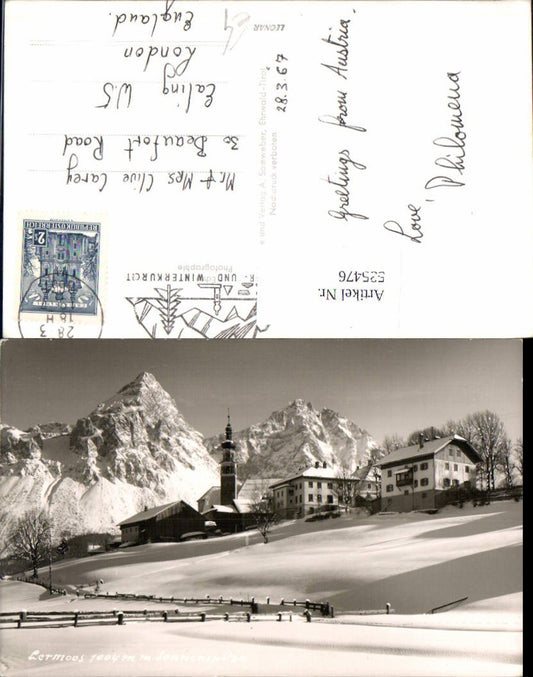 Greetings from Austria.
Love, Philomena
28.3.67
Mr & Mrs Clive Carey
30 Beaufort Road
Ealing W.5
London
England.
LEONAR
e und Verlag A. Somweber, Ehrwald-Tirol
Nachdruck verboten
Photographie
UND WINTERKURORT
REPUBLIK ÖSTERREICH
2
28 3
18H
Artikel Nr.
525476
Lermoos 1004 m m. Sonnenspitze